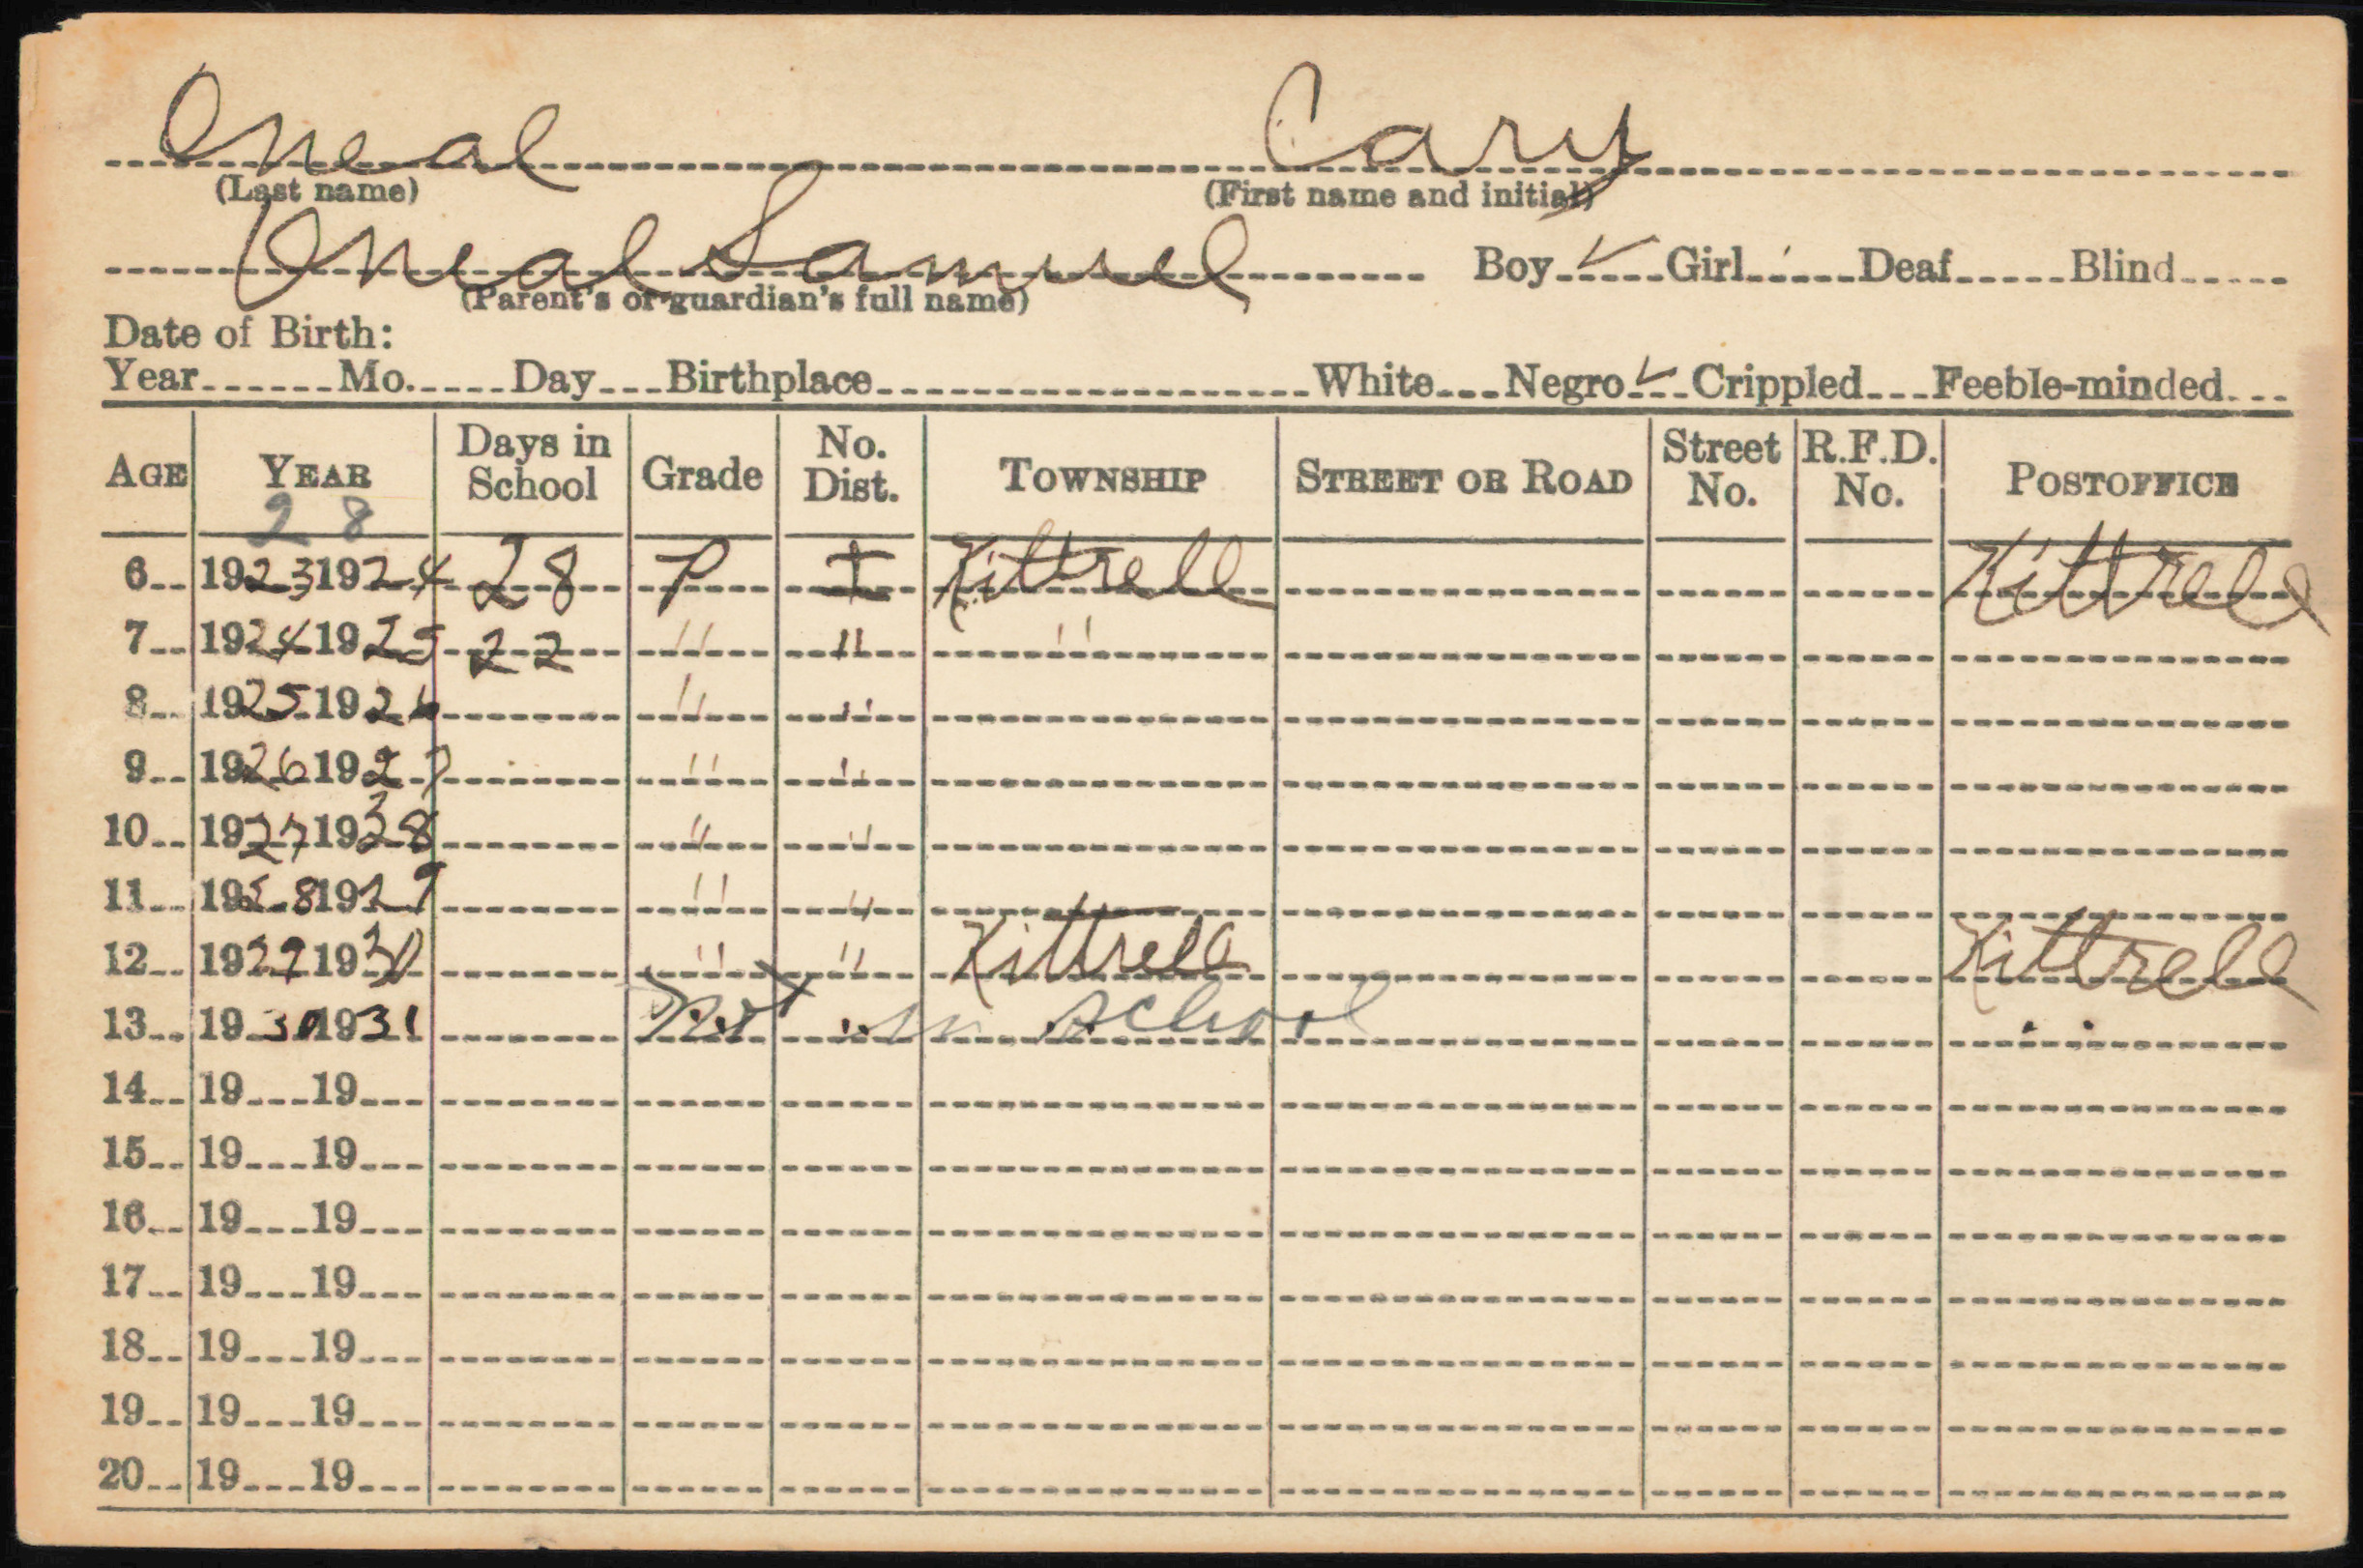 Oneal Cary
(Last name) (First name and initial)
Oneal Samuel Boy ✓ Girl Deaf Blind
(Parent's or guardian's full name)
Date of Birth:
Year Mo. Day Birthplace White Negro ✓ Crippled Feeble-minded
AGE YEAR Days in School Grade No. Dist. TOWNSHIP STREET OR ROAD Street No. R.F.D. No. POSTOFFICE
28
6 1923 1924 28 P I Kittrell Kittrell
7 1924 1925 22 " " "
8 1925 1926 " "
9 1926 1927 " "
10 1927 1928 " "
11 1928 1929 " "
12 1929 1930 " " Kittrell Kittrell
13 1930 1931 Not " in school "
14 19 19
15 19 19
16 19 19
17 19 19
18 19 19
19 19 19
20 19 19